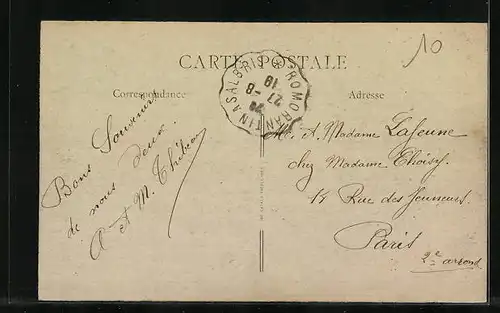 10
CARTE POSTALE
ROMORANTIN A SALBRIS
27 -8
18
Correspondance
Adresse
Bons Souvenirs
de nous deux
A et M.
Mr. A. Madame Lajeune
chez Madame Thoisy
14 Rue des Jeuneurs
Paris
2e arrond